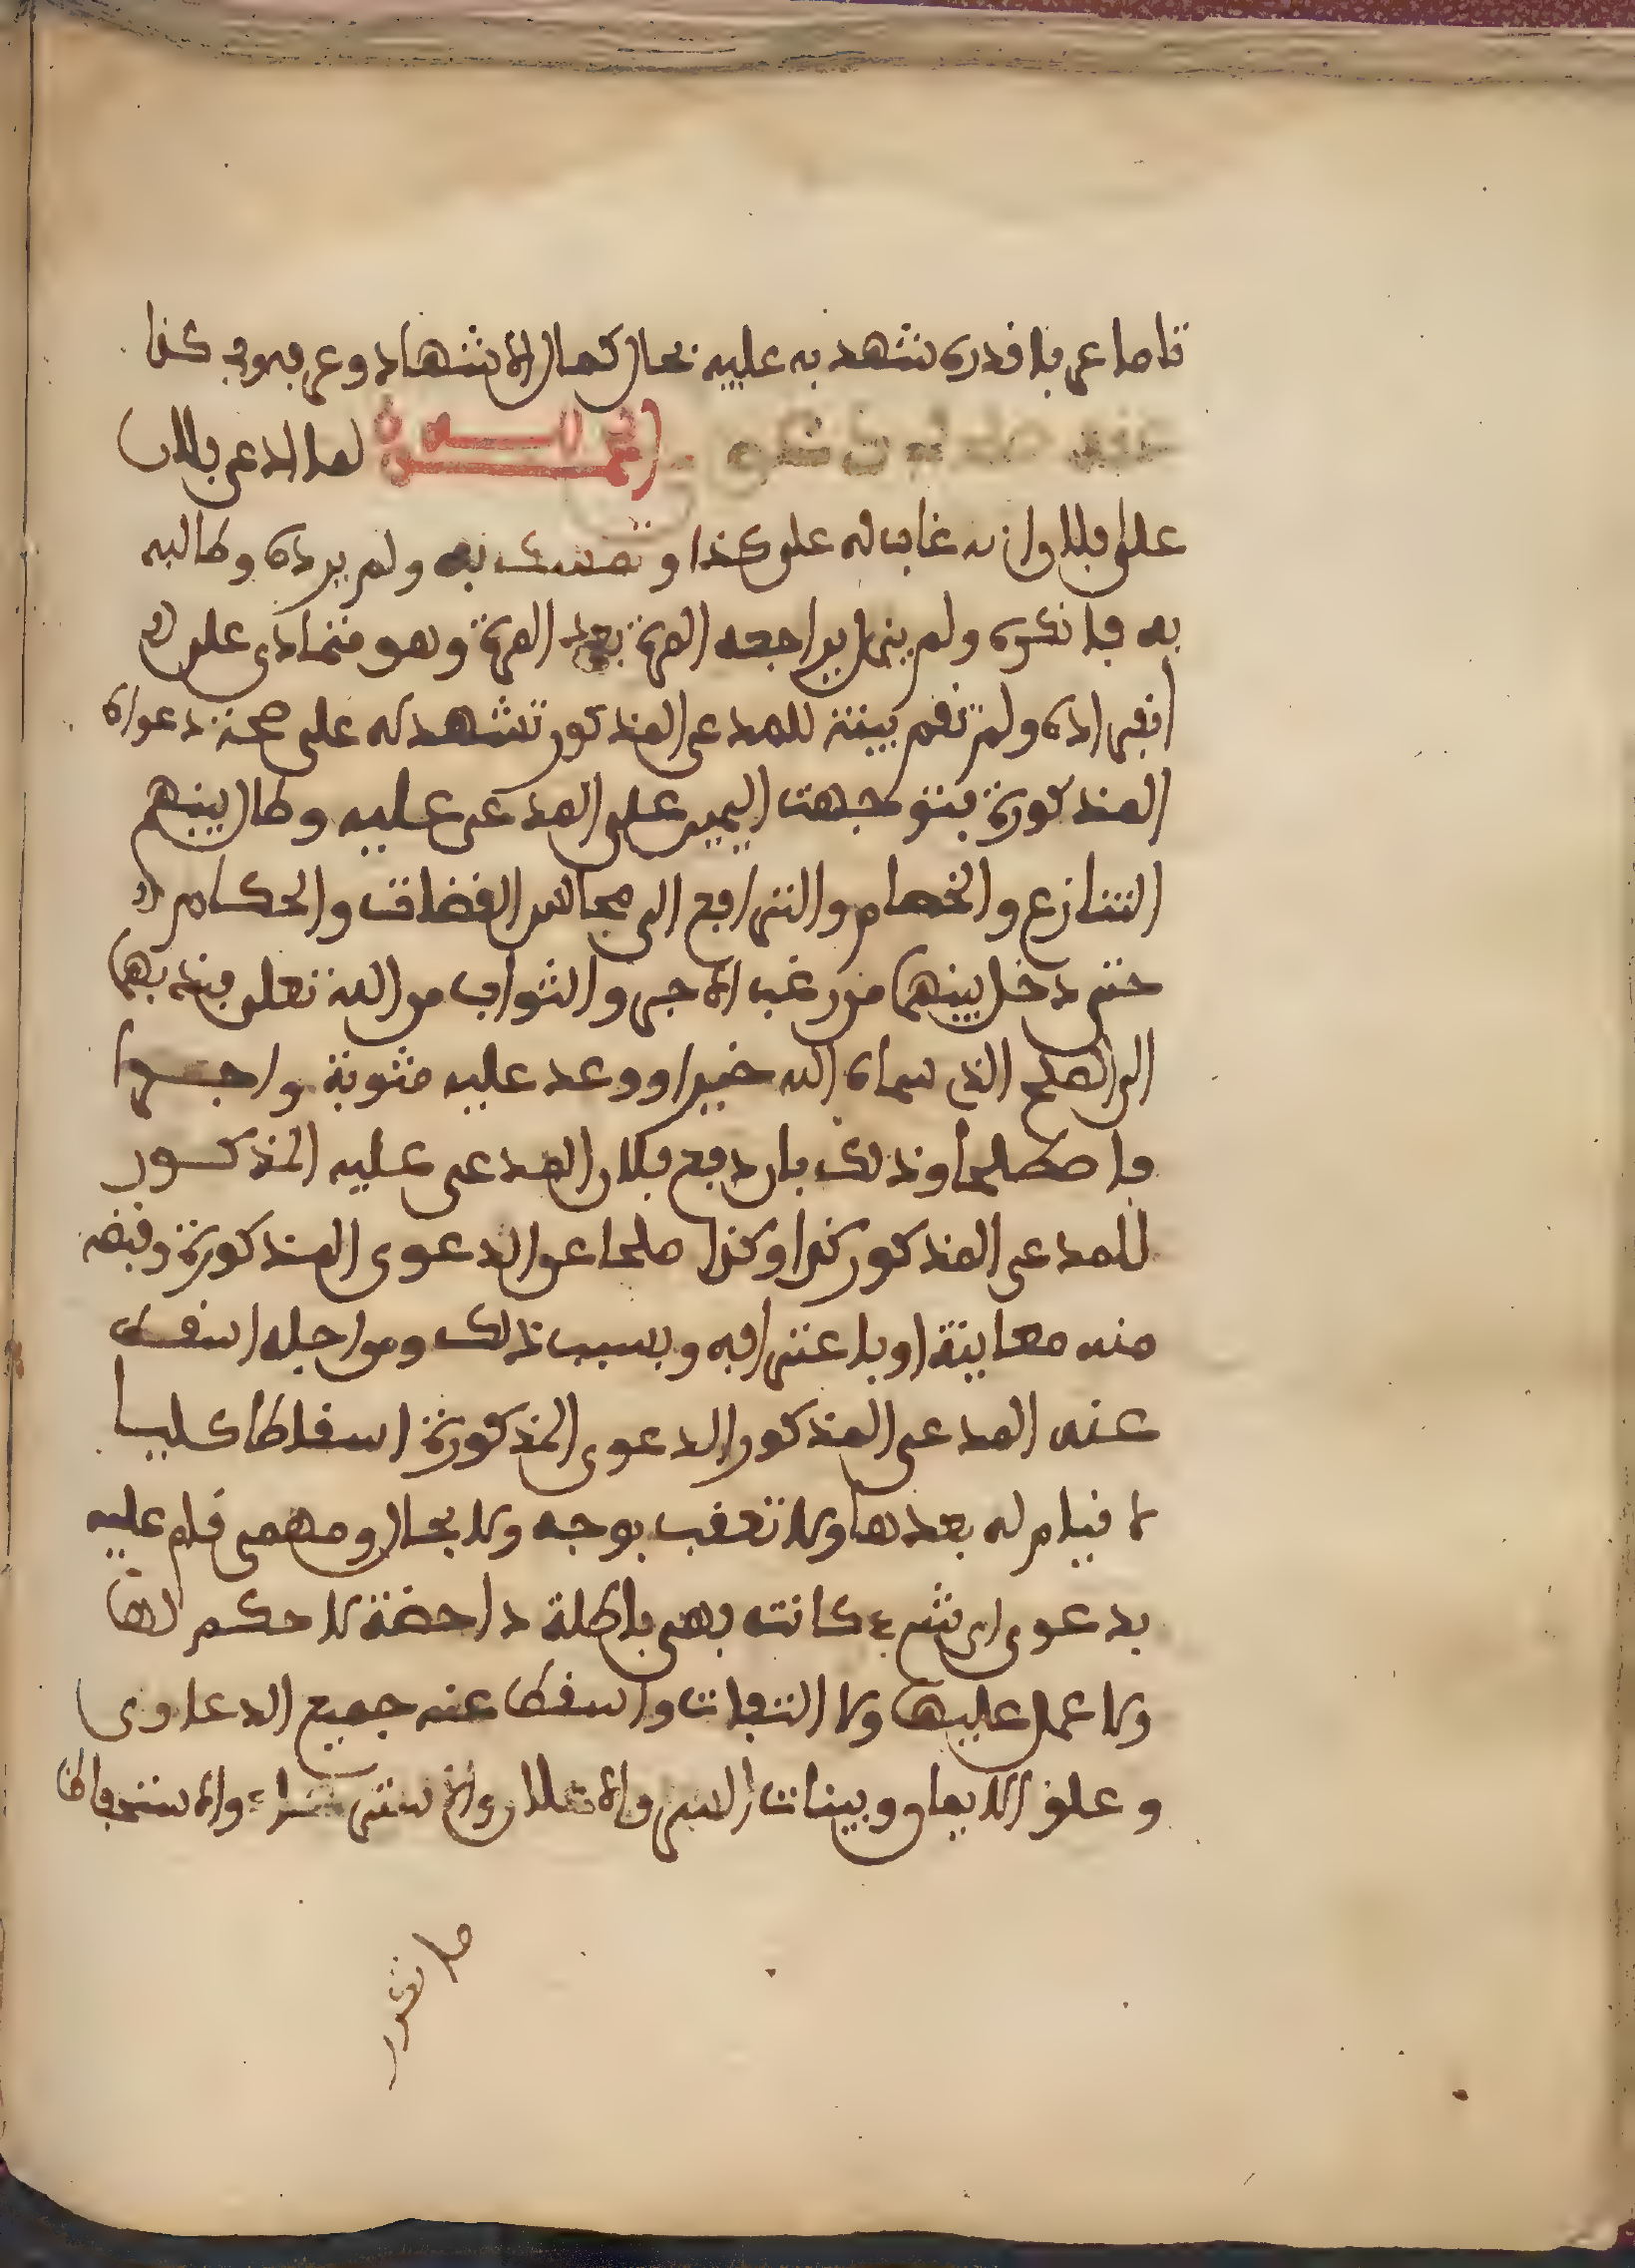 تاما عرفا قدره شهد به عليه بحال كمال الاشهاد وعرفه وفي كذا
الحمد لله لما ادعى فلان
على فلان انه غاب له على كذا وتمسك به ولم يرده وطالبه
به فانكره ولم يزل يراجعه المرة بعد المرة وهو متمادى على
انفراده ولم تقم بينة للمدعى المذكور تشهد له على صحة دعواه
المذكورة فتوجهت اليمين على المدعى عليه وطال بينهم
التنازع والخصام والترافع الى مجالس القضات والحكام
حتى دخل بينهما من رغب الاجر والثواب من الله تعلى فندبهما
الى الصلح الذى سماه الله خيرا ووعد عليه مثوبة واجرا
فاصطلحا وذلك بان دفع فلان المدعى عليه المذكور
للمدعى المذكور كذا وكذا صلحا عن الدعوى المذكورة وقبضه
منه معاينة او باعترافه وبسبب ذلك ومن اجله اسقط
عنه المدعى المذكور الدعوى المذكورة اسقاطا كليا
لا قيام له بعدها ولا تعقب بوجه ولا بحال ومهمى قام عليه
بدعوى اى شىء كانته فهى باطلة داحضة لا حكم لها
ولا عمل عليها ولا التفات واسقط عنه جميع الدعاوى
وعلق الايمان وبينات السر والاعلان والاسترعاء والاستحفاظ
ما تقدر